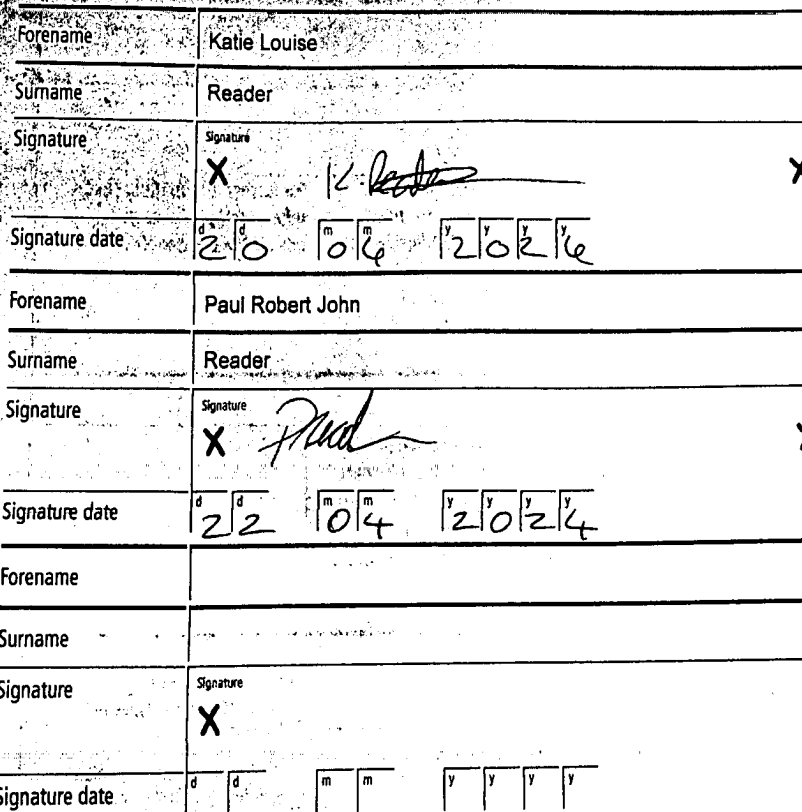 Forename Katie Louise
Surname Reader
Signature Signature
X K. Reader X
Signature date d2 d0 m0 m4 y2 y0 y2 y4
Forename Paul Robert John
Surname Reader
Signature Signature
X
Signature date d2 d2 m0 m4 y2 y0 y2 y4
Forename
Surname
Signature Signature
X
Signature date d d m m y y y y